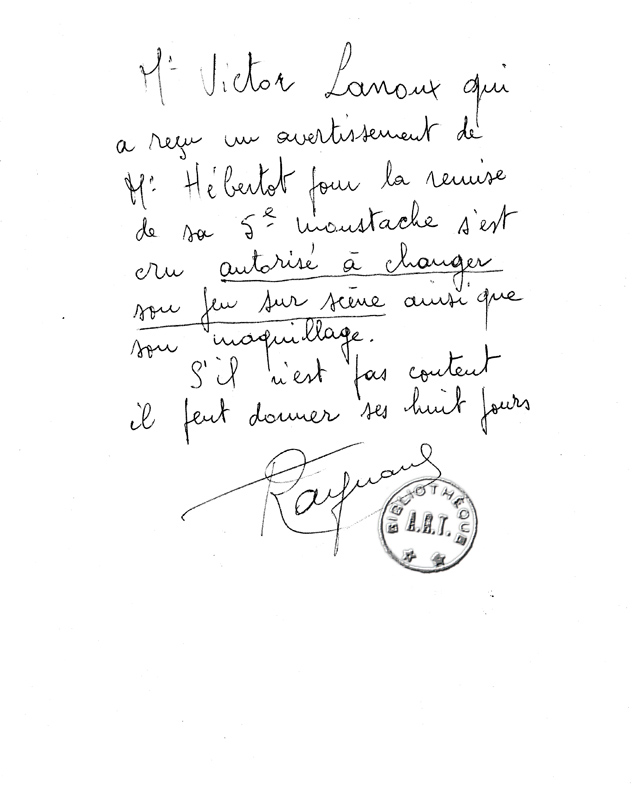 Mr Victor Lanoux qui
a reçu un avertissement de
Mr Hébertot pour la remise
de sa 5e moustache s'est
cru autorisé à changer
son jeu sur scène ainsi que
son maquillage.
S'il n'est pas content
il peut donner ses huit jours
BIBLIOTHÈQUE
A.R.T.